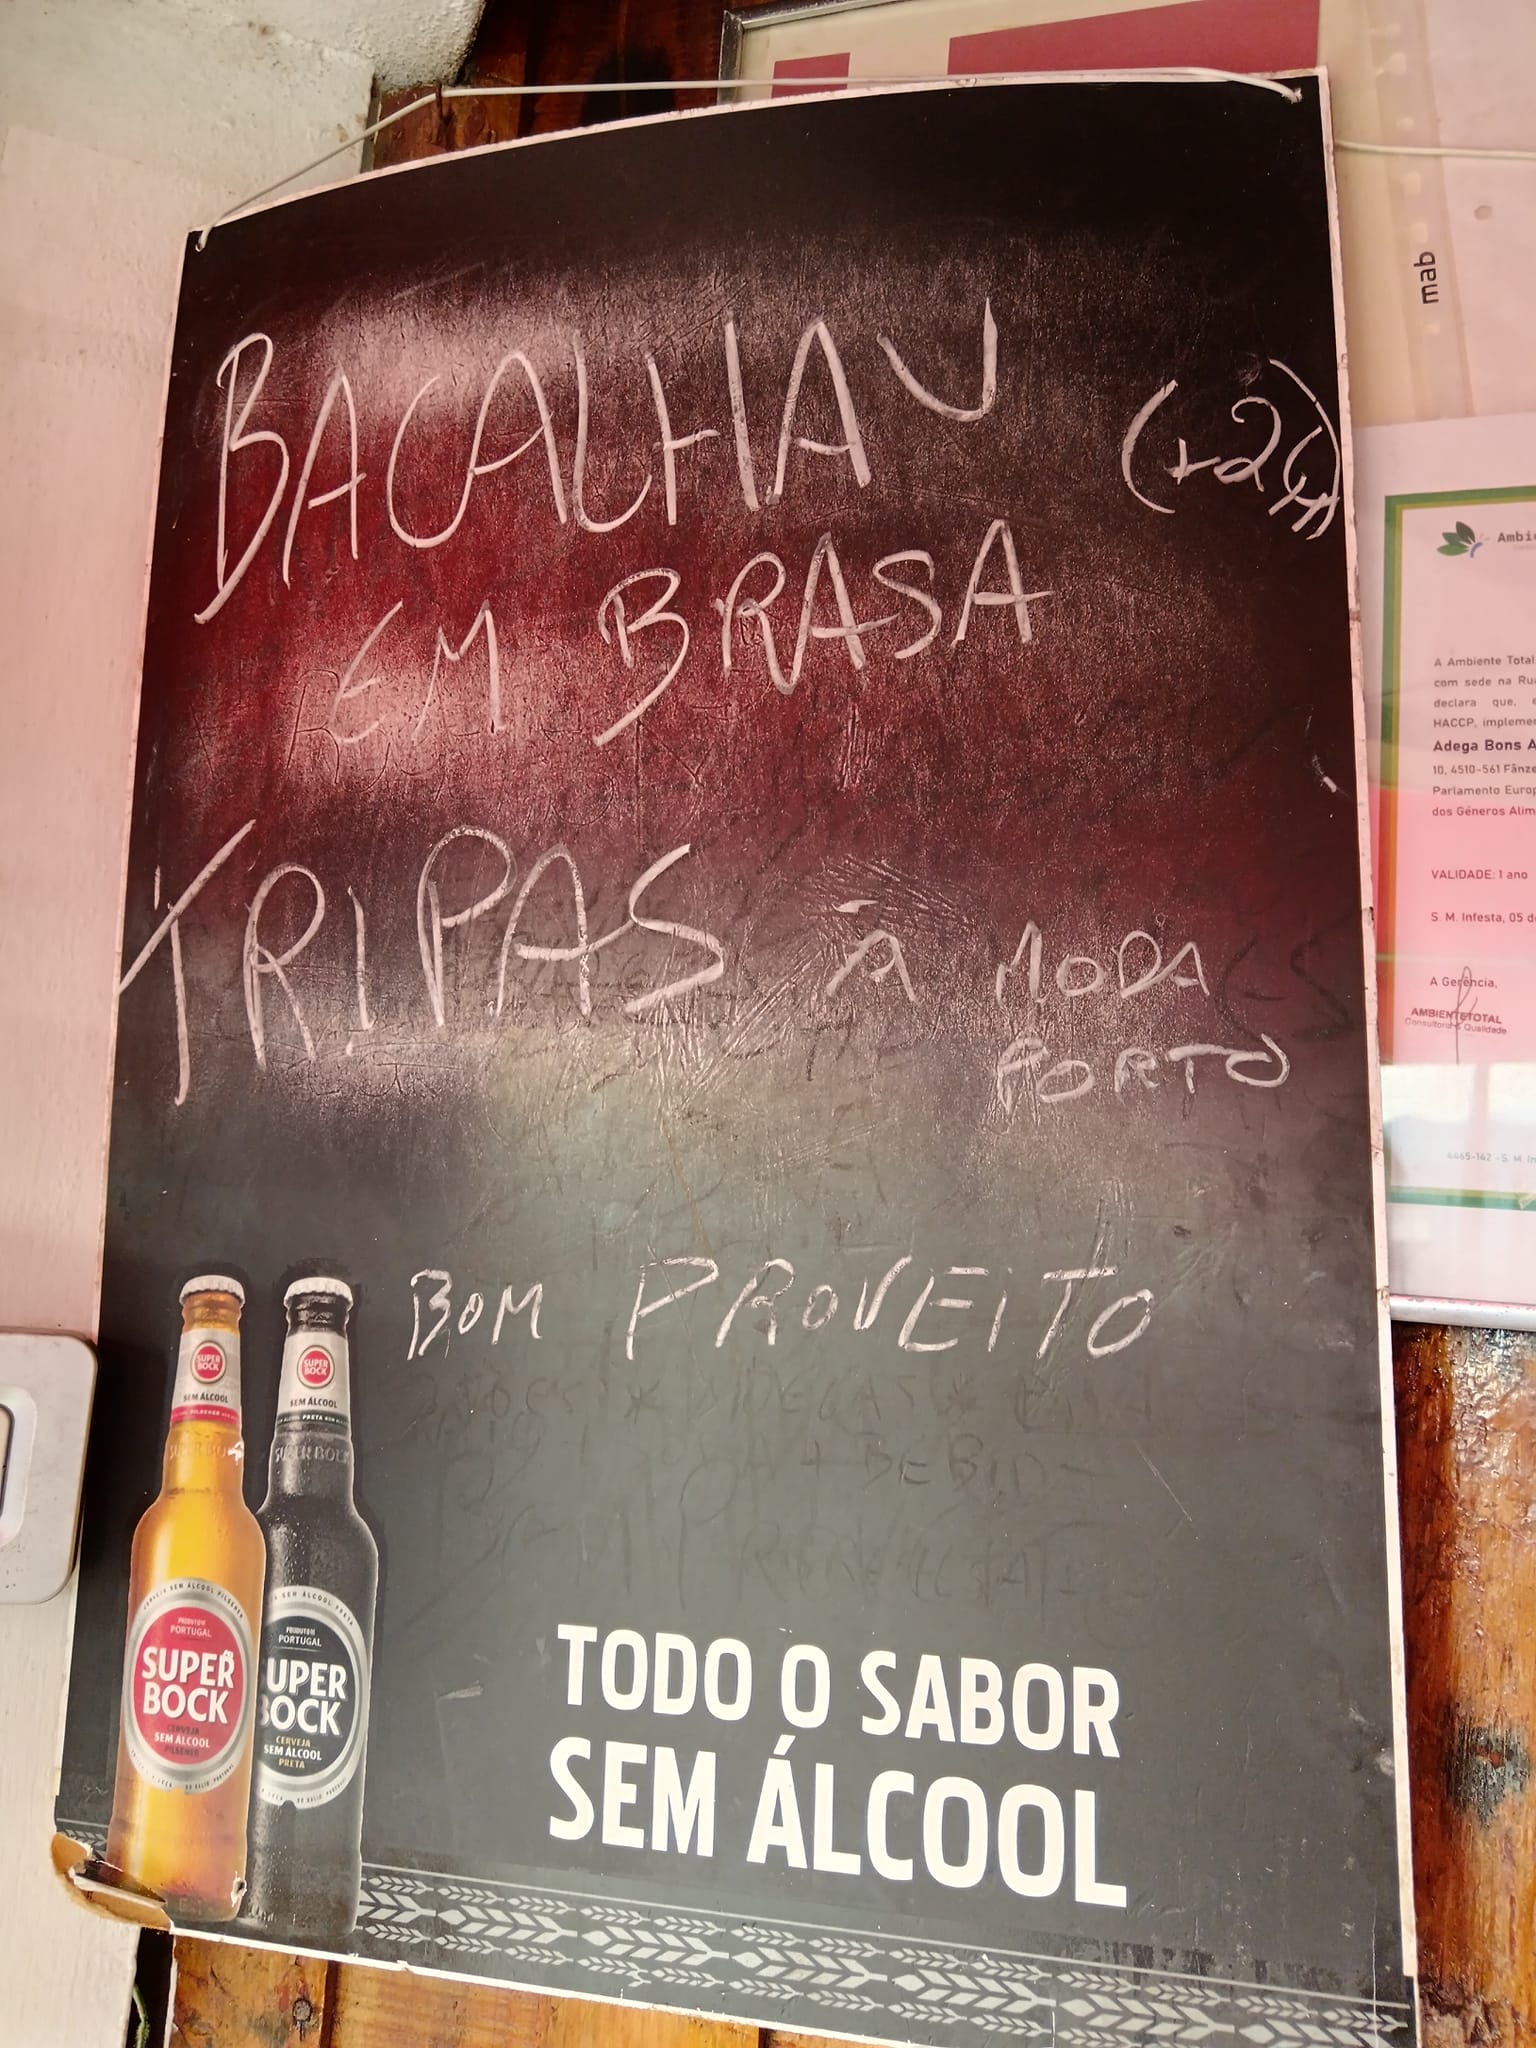 BACALHAU
EM BRASA
TRIPAS À MODA
PORTO
BOM PROVEITO
SUPER
BOCK
SEM ÁLCOOL
SUPER
BOCK
SEM ÁLCOOL
PRODUTO DE
PORTUGAL
SUPER
BOCK
CERVEJA
SEM ÁLCOOL
PILSENER
PRODUTO DE
PORTUGAL
UPER
BOCK
CERVEJA
SEM ÁLCOOL
PRETA
TODO O SABOR
SEM ÁLCOOL
mab
A Ambiente Total
com sede na Rua
declara que,
HACCP, impleme
Adega Bons A
10, 4510-561 Fânze
Parlamento Europ
dos Géneros Alim
VALIDADE: 1 ano
S. M. Infesta, 05 d
A Gerência,
AMBIENTETOTAL
Consultoria & Qualidade
4465-142 - S. M. In